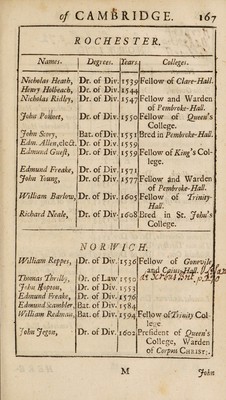 of CAMBRIDGE. 167
ROCHESTER.
Names. Degrees. Years. Colleges.
Nicholas Heath, Dr. of Div. 1539 Fellow of Clare-Hall.
Henry Holbeach, Dr. of Div. 1544
Nicholas Ridley, Dr. of Div. 1547 Fellow and Warden
of Pembroke-Hall.
John Poinet, Dr. of Div. 1550 Fellow of Queen's
College.
John Scory, Bat. of Div. 1551 Bred in Pembroke-Hall.
Edm. Allen, elect. Dr. of Div. 1559
Edmund Guest, Dr. of Div. 1559 Fellow of King's Col-
lege.
Edmund Freake, Dr. of Div. 1571
John Young, Dr. of Div. 1577 Fellow and Warden
of Pembroke-Hall.
William Barlow, Dr. of Div. 1605 Fellow of Trinity-
Hall.
Richard Neale, Dr. of Div. 1608 Bred in St. John's
College.
NORWICH.
William Reppes, Dr. of Div. 1536 Fellow of Gonevile
and Caius-Hall.
Thomas Thirlby, Dr. of Law 1550
John Hopton, Dr. of Div. 1553
Edmund Freake, Dr. of Div. 1576
Edmund Scambler, Bat. of Div. 1584
William Redman, Bat. of Div. 1594 Fellow of Trinity Col-
lege
John Jegon, Dr. of Div. 1602 President of Queen's
College, Warden
of Corpus CHRISTI.
M John